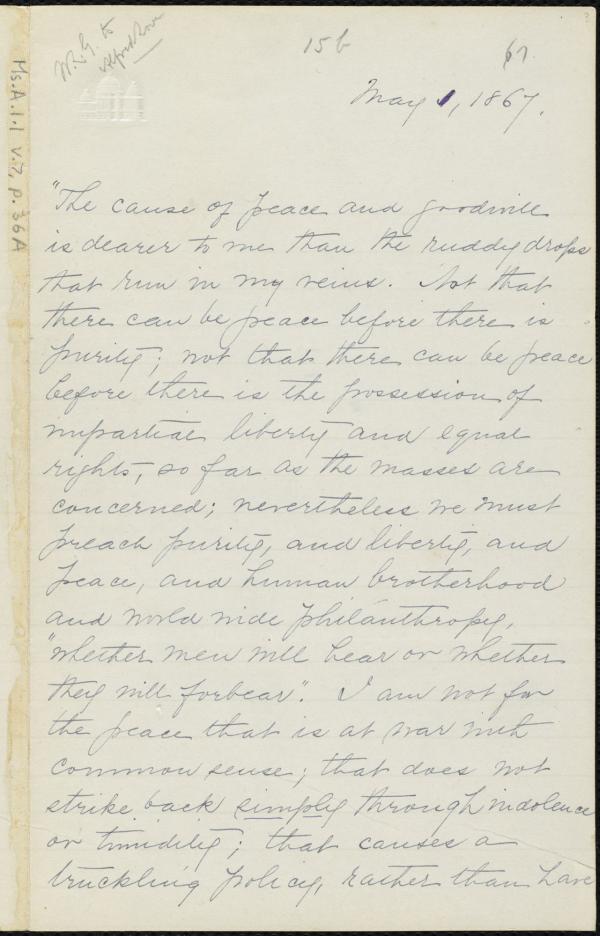 W.L.G. to
Alfred Love
15b
67
May 1, 1867.
Ms. A. 1. 1 v. 7, p. 36A
"The cause of peace and goodwill
is dearer to me than the ruddy drops
that run in my veins. Not that
there can be peace before there is
purity; not that there can be peace
before there is the possession of
impartial liberty and equal
rights, so far as the masses are
concerned; nevertheless we must
preach purity, and liberty, and
peace, and human brotherhood
and world wide philanthropy,
"whether men will hear or whether
they will forbear". I am not for
the peace that is at war with
common sense; that does not
strike back simply through indolence
or timidity; that causes a
truckling policy, rather than have